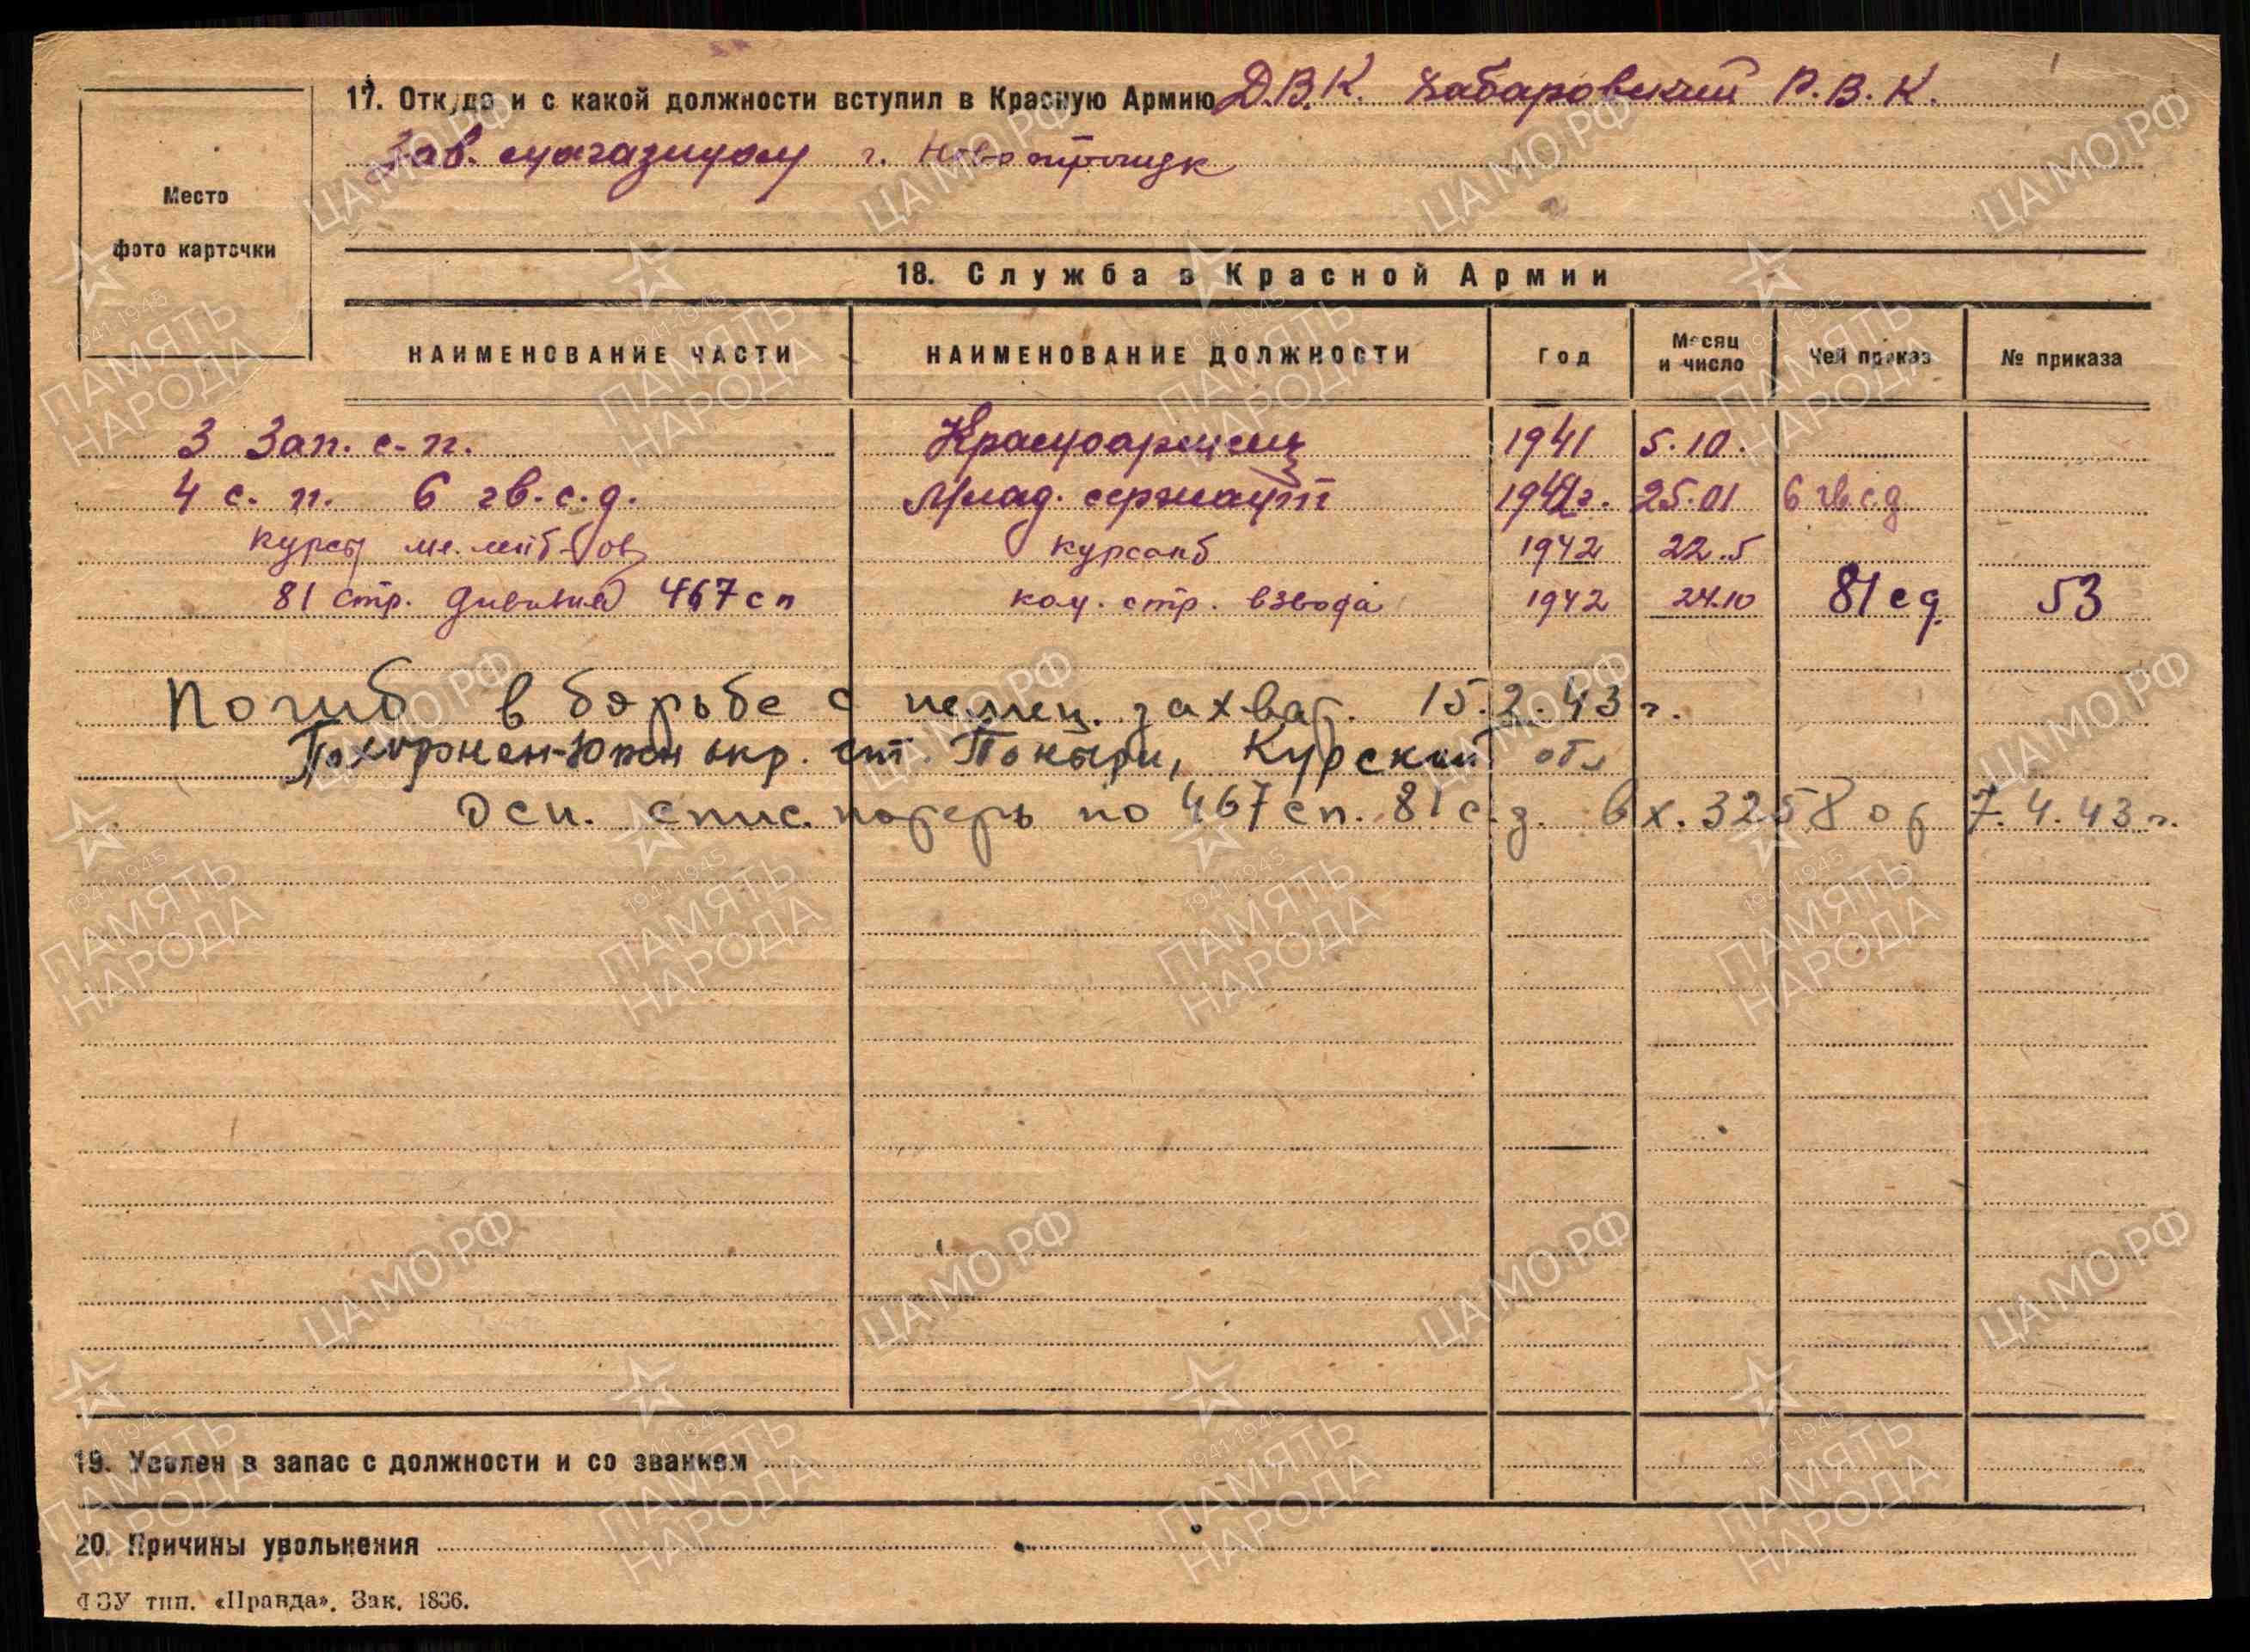 17. Откуда и с какой должности вступил в Красную Армию Д.В.К. Хабаровский Р.В.К.
Зав. магазином г.
Место
фото карточки
18. Служба в Красной Армии
НАИМЕНОВАНИЕ ЧАСТИ НАИМЕНОВАНИЕ ДОЛЖНОСТИ Год Месяц и число Чей приказ № приказа
3 Зап. с.п. Красноармеец 1941 5.10.
4 с. п. 6 гв. с. д. Млад. сержант 1942г. 25.01 6 гв.с.д
курсы мл. лейт-ов курсант 1942 22.5
81 стр. дивизия 467 сп ком. стр. взвода 1942 24.10 81 сд. 53
Погиб в борьбе с немец. захват. 15.2.43 г.
Похоржен-Южн окр. ст. Поныри, Курский обл
Осн. спис. потерь по 467 сп. 81 с.д. вх. 3258 от 7.4.43 г.
19. Уволен в запас с должности и со званием
20. Причины увольнения
ФЗУ тип. «Правда». Зак. 1836.
ЦАМО РФ
1941-1945
ПАМЯТЬ
НАРОДА